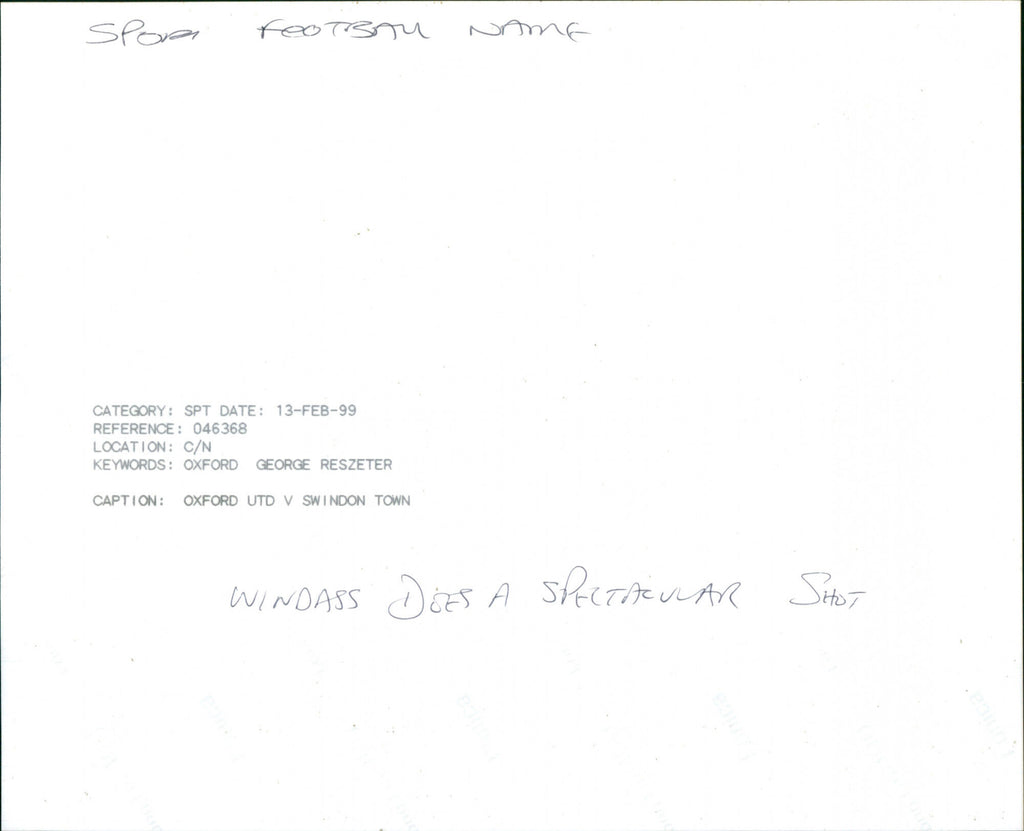 SPORT FOOTBALL NAME
CATEGORY: SPT DATE: 13-FEB-99
REFERENCE: 046368
LOCATION: C/N
KEYWORDS: OXFORD GEORGE RESZETER
CAPTION: OXFORD UTD V SWINDON TOWN
WINDASS DOES A SPECTACULAR SHOT